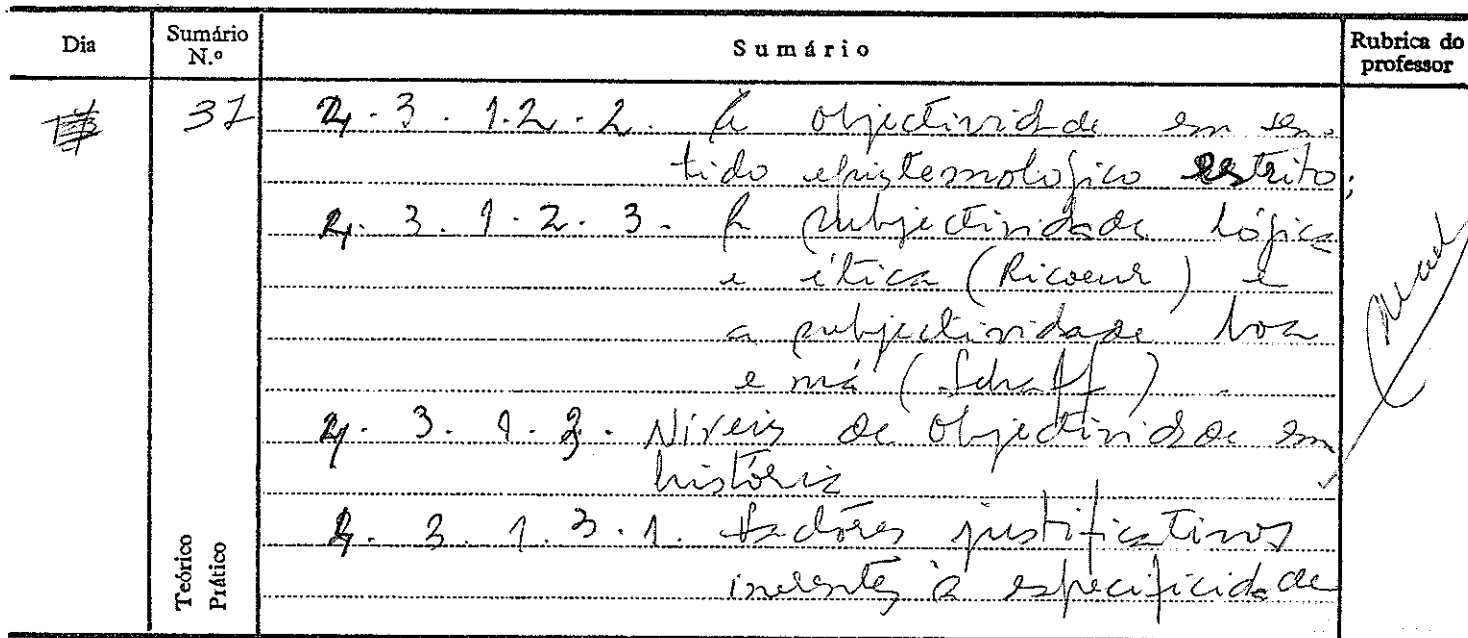 Dia Sumário N.º Sumário Rubrica do professor
37 4.3.1.2.2. A objectividade em sen-
tido epistemológico estrito;
4.3.1.2.3. A subjectividade lógica
e ética (Ricoeur) e
a subjectividade boa
e má (Schaff).
4.3.1.3. Níveis de objectividade em
história
4.3.1.3.1. Factores justificativos
inerentes à especificidade
Teórico
Prático